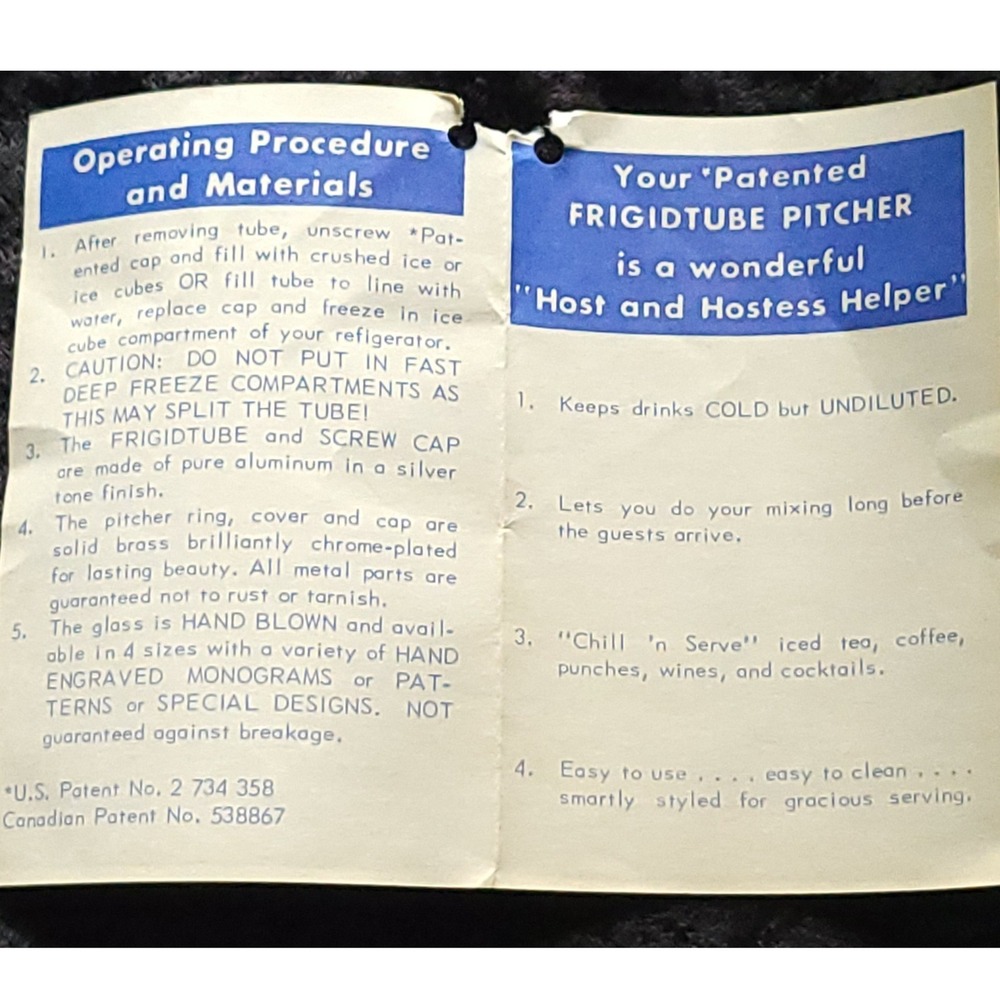 Operating Procedure
and Materials
1. After removing tube, unscrew *Pat-
ented cap and fill with crushed ice or
ice cubes OR fill tube to line with
water, replace cap and freeze in ice
cube compartment of your refigerator.
2. CAUTION: DO NOT PUT IN FAST
DEEP FREEZE COMPARTMENTS AS
THIS MAY SPLIT THE TUBE!
3. The FRIGIDTUBE and SCREW CAP
are made of pure aluminum in a silver
tone finish.
4. The pitcher ring, cover and cap are
solid brass brilliantly chrome-plated
for lasting beauty. All metal parts are
guaranteed not to rust or tarnish.
5. The glass is HAND BLOWN and avail-
able in 4 sizes with a variety of HAND
ENGRAVED MONOGRAMS or PAT-
TERNS or SPECIAL DESIGNS. NOT
guaranteed against breakage.
*U.S. Patent No. 2 734 358
Canadian Patent No. 538867
Your *Patented
FRIGIDTUBE PITCHER
is a wonderful
"Host and Hostess Helper"
1. Keeps drinks COLD but UNDILUTED.
2. Lets you do your mixing long before
the guests arrive.
3. "Chill 'n Serve" iced tea, coffee,
punches, wines, and cocktails.
4. Easy to use . . . . easy to clean . . . .
smartly styled for gracious serving.